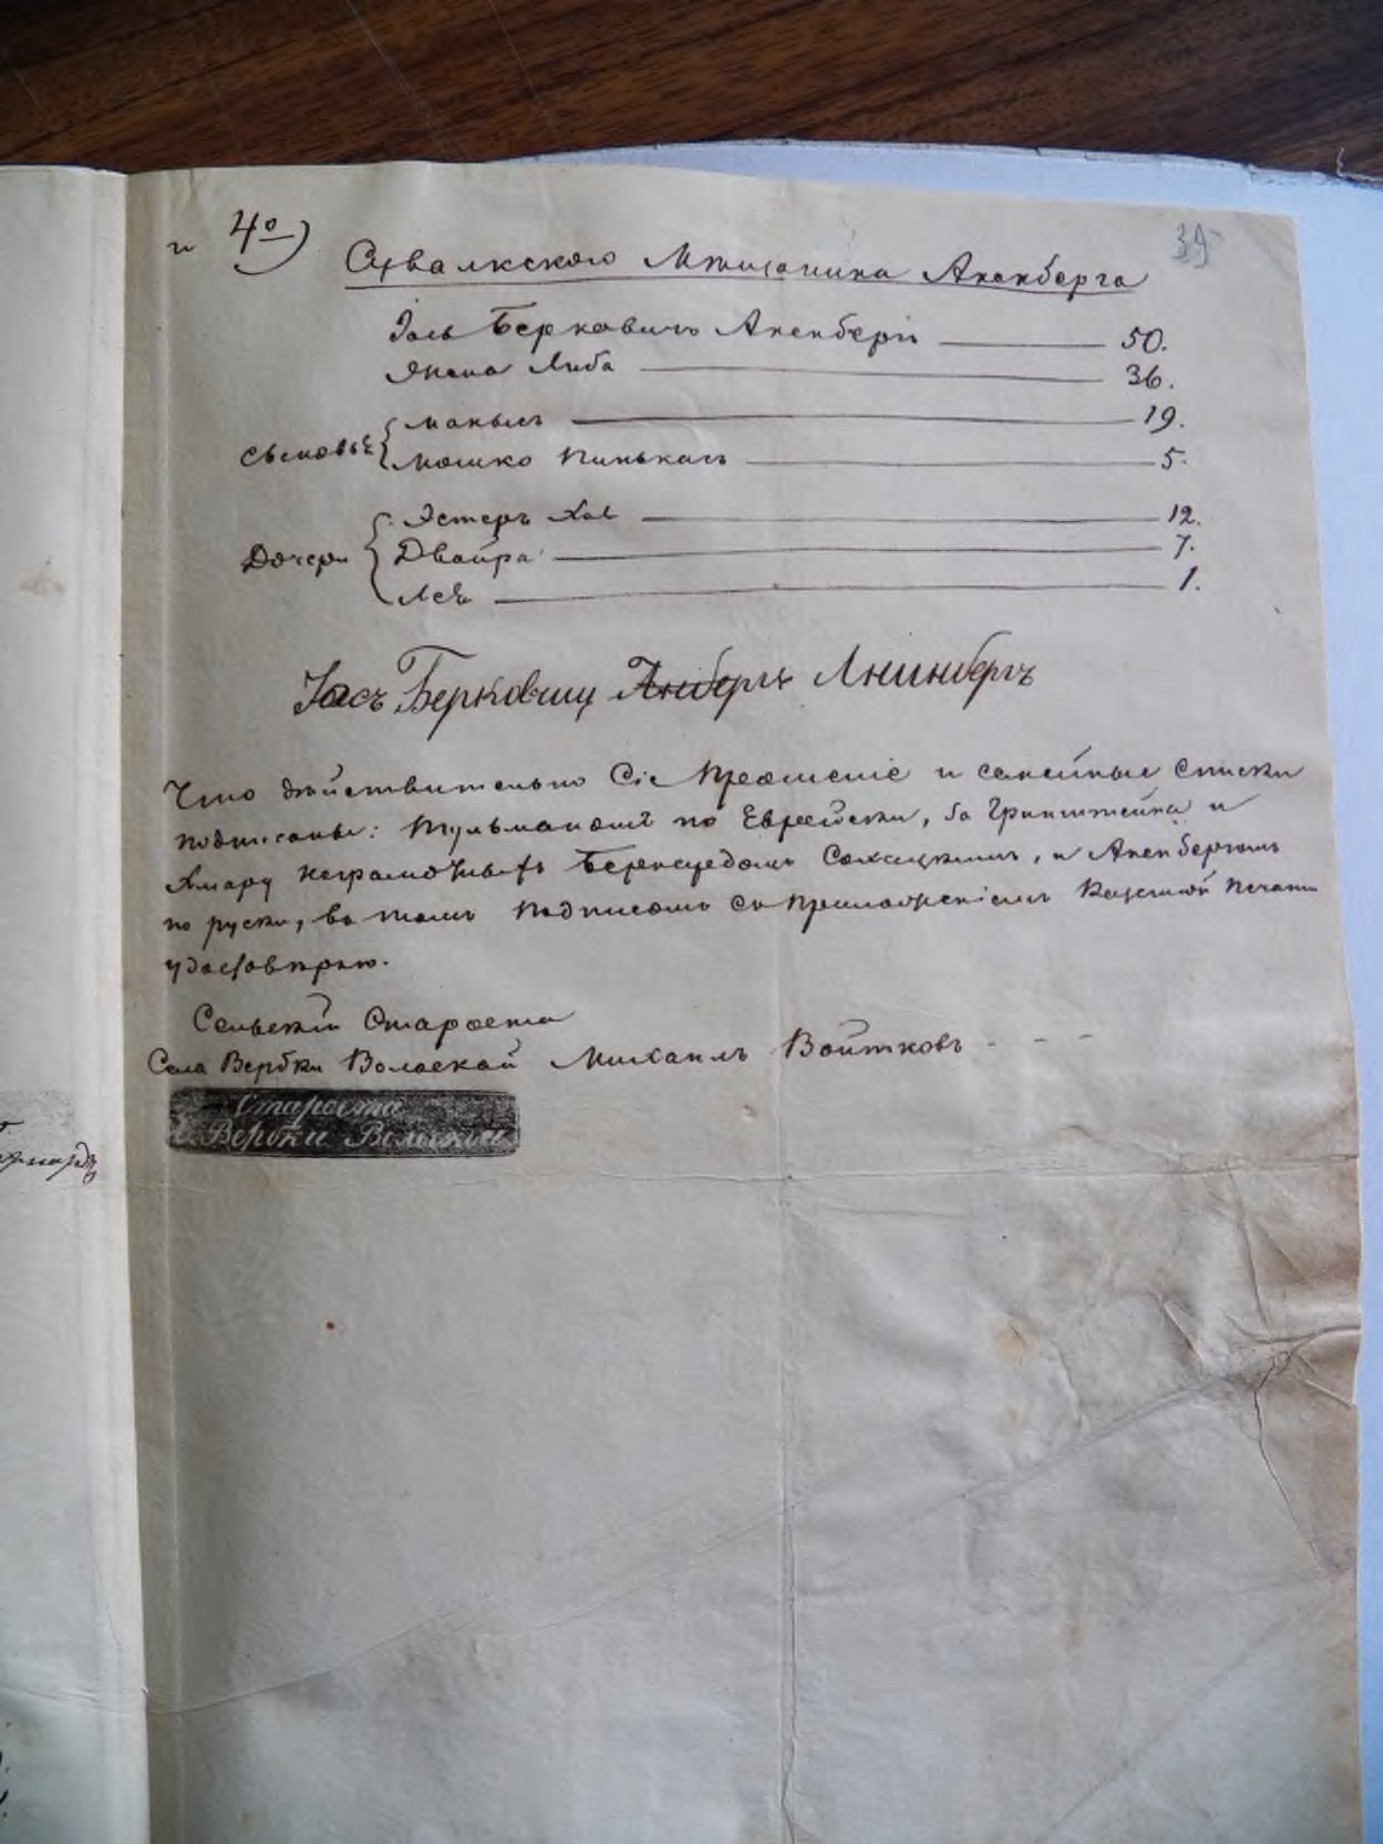 и 4º) Сувалкского Мѣщанина Аненберга
39
Іоль Берковичъ Аненбергъ 50.
Жена Либа 36.
Сыновья Манысъ 19.
Мошко Пинькасъ 5.
Дочери Эстеръ Хая 12.
Двойра 7.
Лея 1.
Берковиц Анберг Анинбергъ
Что дѣйствительно Сіе Прошеніе и семейные списки
подписаны: Тульманомъ по Еврейски, за Гринштейна и
неграмотныхъ и Аненбергомъ
по руски, въ томъ подписомъ съ приложеніемъ Казенной печати
удостовѣряю.
Сельскій Староста
Села Вербки Волоской Михаилъ Войтковъ - - -
Староста
С. Вербки Волоской